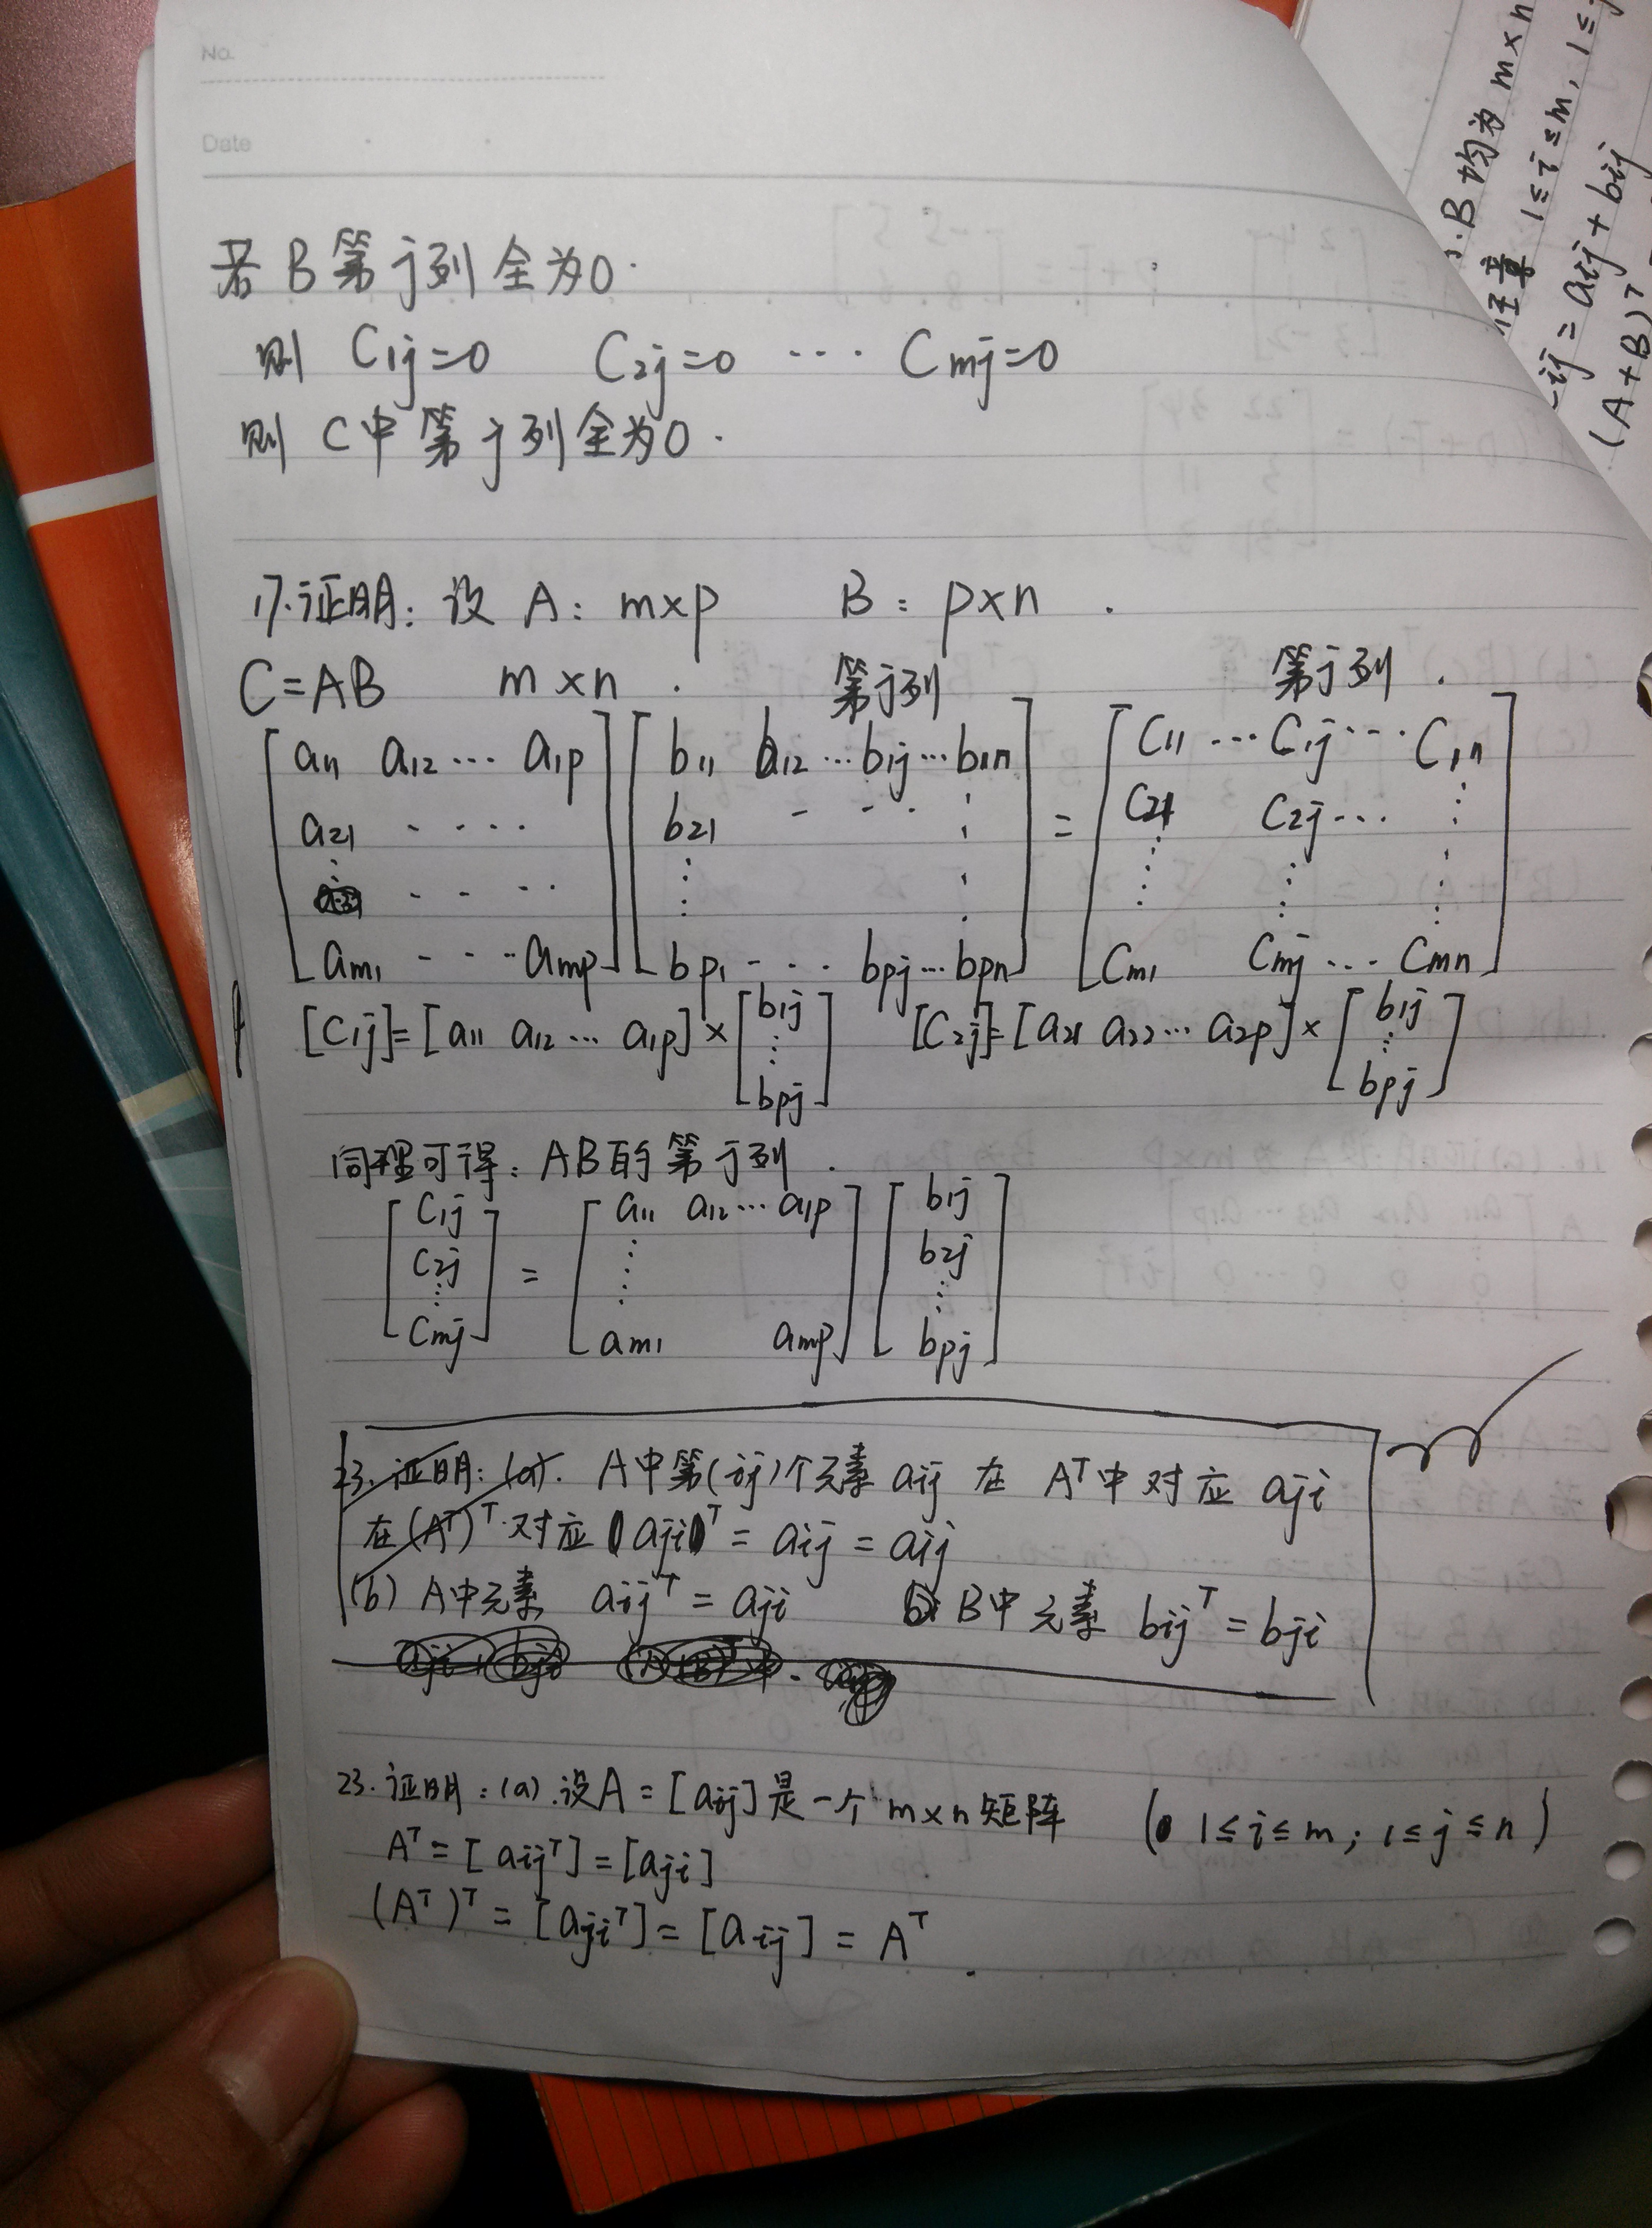 No.
Date
若 B 第 j 列 全为0.
则 C1j=0 C2j=0 ··· Cmj=0
则 C中 第 j 列 全为0.
17.证明: 设 A: m×p B: p×n .
C=AB m×n . 第j列 第j列 .
[a11 a12 ··· a1p] [b11 b12 ··· b1j ··· b1n] = [C11 ··· C1j ··· C1n]
a21 ···· b21 ···· C21 C2j ···
am1 ··· amp bp1 ··· bpj ··· bpn Cm1 Cmj ··· Cmn
[C1j]=[a11 a12 ··· a1p]×[b1j ⋮ bpj] [C2j]=[a21 a22 ··· a2p]×[b1j ⋮ bpj]
同理可得: AB的第j列 .
[C1j] = [a11 a12 ··· a1p] [b1j]
C2j ⋮ b2j
⋮ ⋮ ⋮
Cmj am1 amp bpj
23. 证明: (a). A中第(ij)个元素 aij 在 Aᵀ中对应 aji
在(Aᵀ)ᵀ.对应 (aji)ᵀ = aij = aij
(b) A中元素 aijᵀ = aji B中元素 bijᵀ = bji
23. 证明: (a).设A = [aij]是一个 m×n矩阵 ( 1≤i≤m; 1≤j≤n)
Aᵀ = [aijᵀ] = [aji]
(Aᵀ)ᵀ = [ajiᵀ] = [aij] = Aᵀ .
B均为 m×n
1≤i≤m, 1≤
ij = aij + bij
(A+B)ᵀ